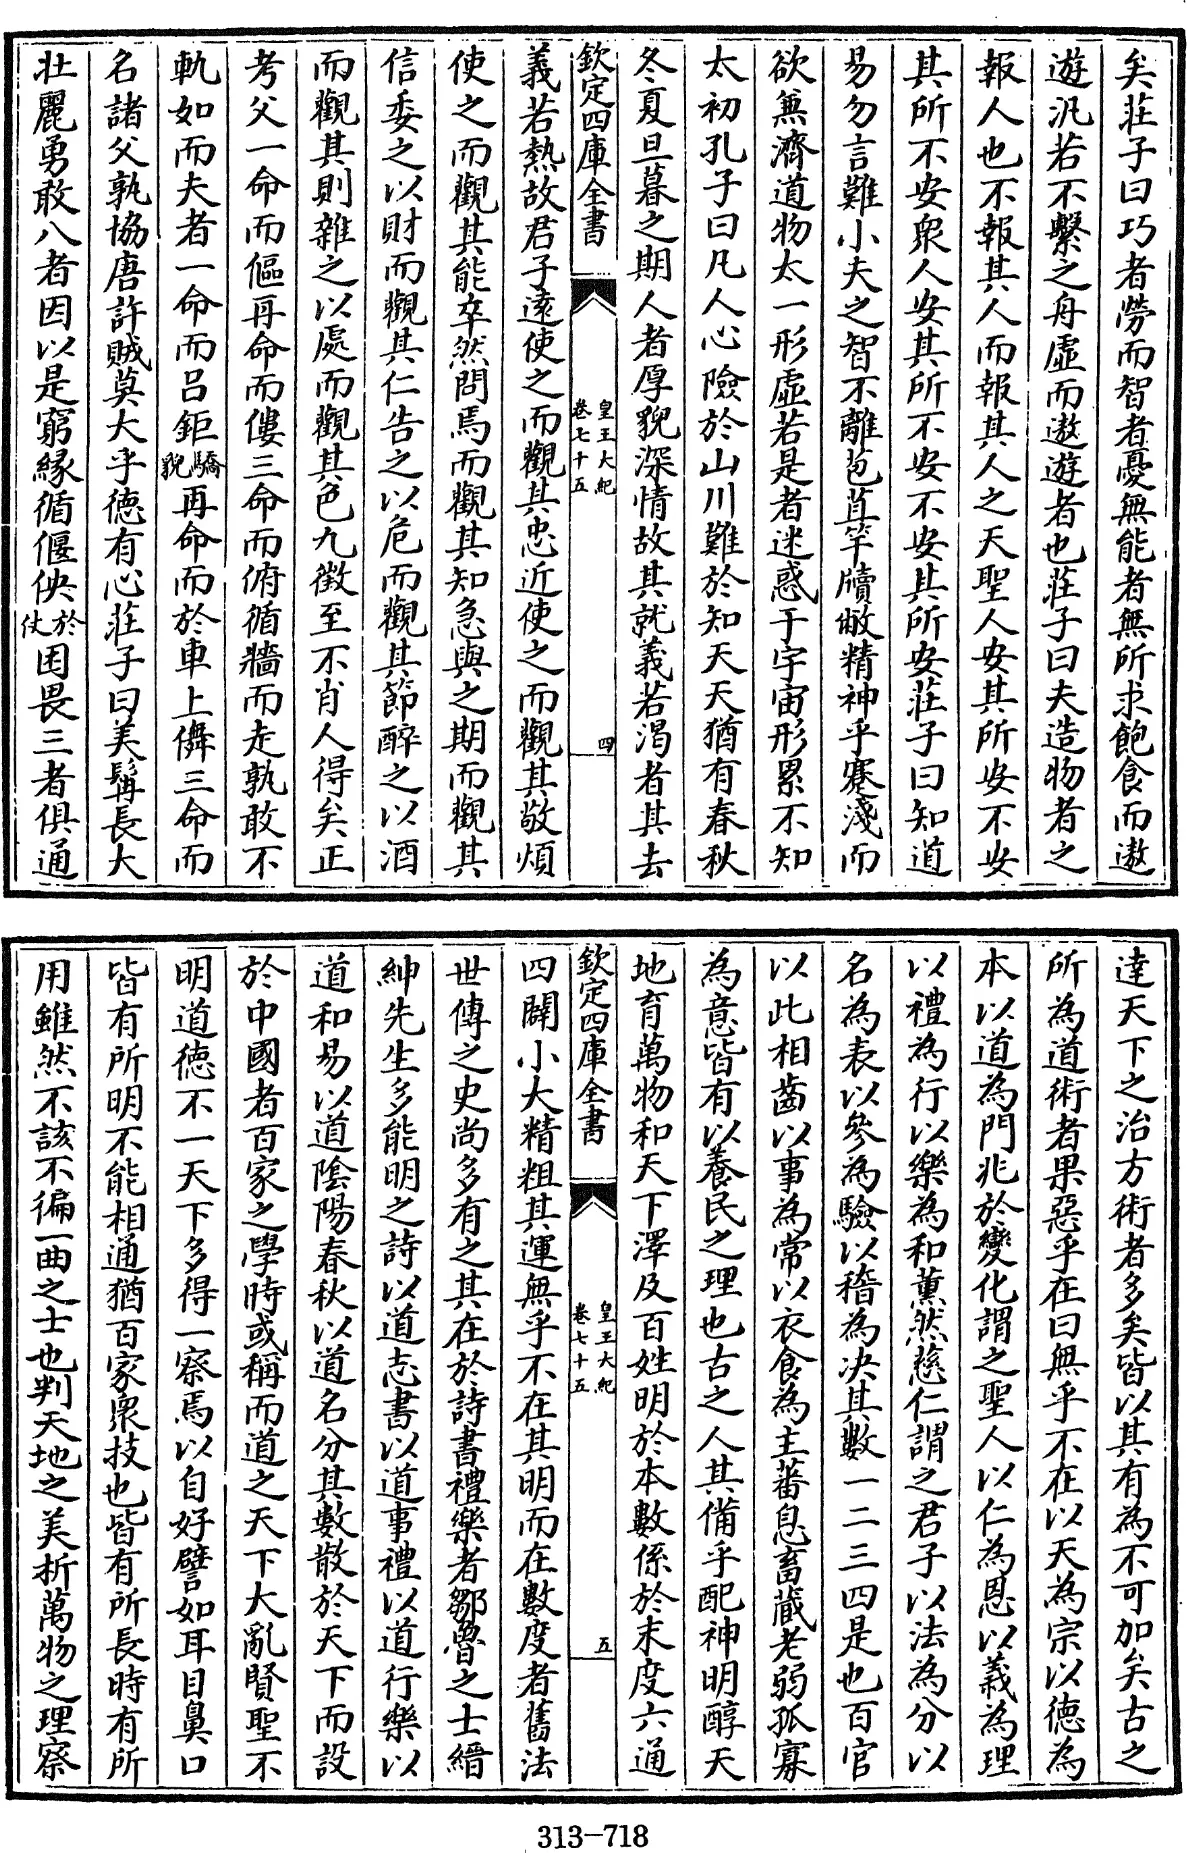 矣莊子曰巧者勞而智者憂無能者無所求飽食而遨
遊汎若不繫之舟虛而遨遊者也莊子曰夫造物者之
報人也不報其人而報其人之天聖人安其所安不安
其所不安衆人安其所不安不安其所安莊子曰知道
易勿言難小夫之智不離苞苴竿牘敝精神乎蹇淺而
欲兼濟道物太一形虛若是者迷惑于宇宙形累不知
太初孔子曰凡人心險於山川難於知天天猶有春秋
冬夏旦暮之期人者厚貌深情故其就義若渴者其去
欽定四庫全書
皇王大紀
卷七十五
四
義若熱故君子遠使之而觀其忠近使之而觀其敬煩
使之而觀其能卒然問焉而觀其知急與之期而觀其
信委之以財而觀其仁告之以危而觀其節醉之以酒
而觀其則雜之以處而觀其色九徵至不肖人得矣正
考父一命而傴再命而僂三命而俯循牆而走孰敢不
軌如而夫者一命而呂鉅驕貌再命而於車上儛三命而
名諸父孰協唐許賊莫大乎德有心莊子曰美髯長大
壯麗勇敢八者因以是窮緣循偃佒於仗困畏三者俱通
達天下之治方術者多矣皆以其有為不可加矣古之
所為道術者果惡乎在曰無乎不在以天為宗以德為
本以道為門兆於變化謂之聖人以仁為恩以義為理
以禮為行以樂為和薰然慈仁謂之君子以法為分以
名為表以參為驗以稽為决其數一二三四是也百官
以此相齒以事為常以衣食為主蕃息畜藏老弱孤寡
為意皆有以養民之理也古之人其備乎配神明醇天
地育萬物和天下澤及百姓明於本數係於末度六通
欽定四庫全書
皇王大紀
卷七十五
五
四闢小大精粗其運無乎不在其明而在數度者舊法
世傳之史尚多有之其在於詩書禮樂者鄒魯之士縉
紳先生多能明之詩以道志書以道事禮以道行樂以
道和易以道陰陽春秋以道名分其數散於天下而設
於中國者百家之學時或稱而道之天下大亂賢聖不
明道德不一天下多得一察焉以自好譬如耳目鼻口
皆有所明不能相通猶百家衆技也皆有所長時有所
用雖然不該不徧一曲之士也判天地之美析萬物之理察
313-718